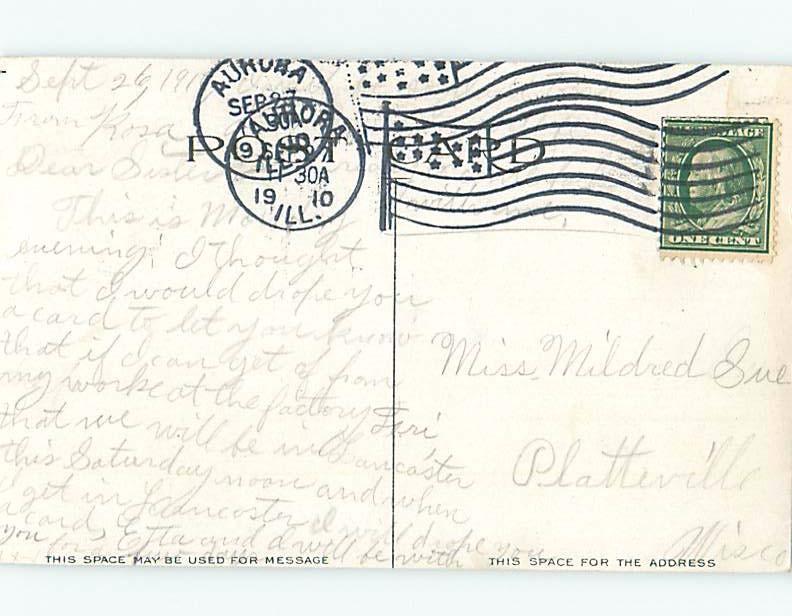 Sept 26 191
From Rosa
AURORA
SEP 27
AURORA
SEP 27
11 30A
19 10
ILL.
POST CARD
POSTAGE
ONE CENT
Dear Sister
with me,
This is Mo
evening. I thought
that I would drope you
a card to let you know
that if I can get of from
my worke at the factory Fri
that we will be in Lancaster
this Saturday noon and when
I get in Lancoster I will drope you
a card,
you for Etta and I will be with
Miss. Mildred Sue
Platteville
Wisco
THIS SPACE MAY BE USED FOR MESSAGE
THIS SPACE FOR THE ADDRESS